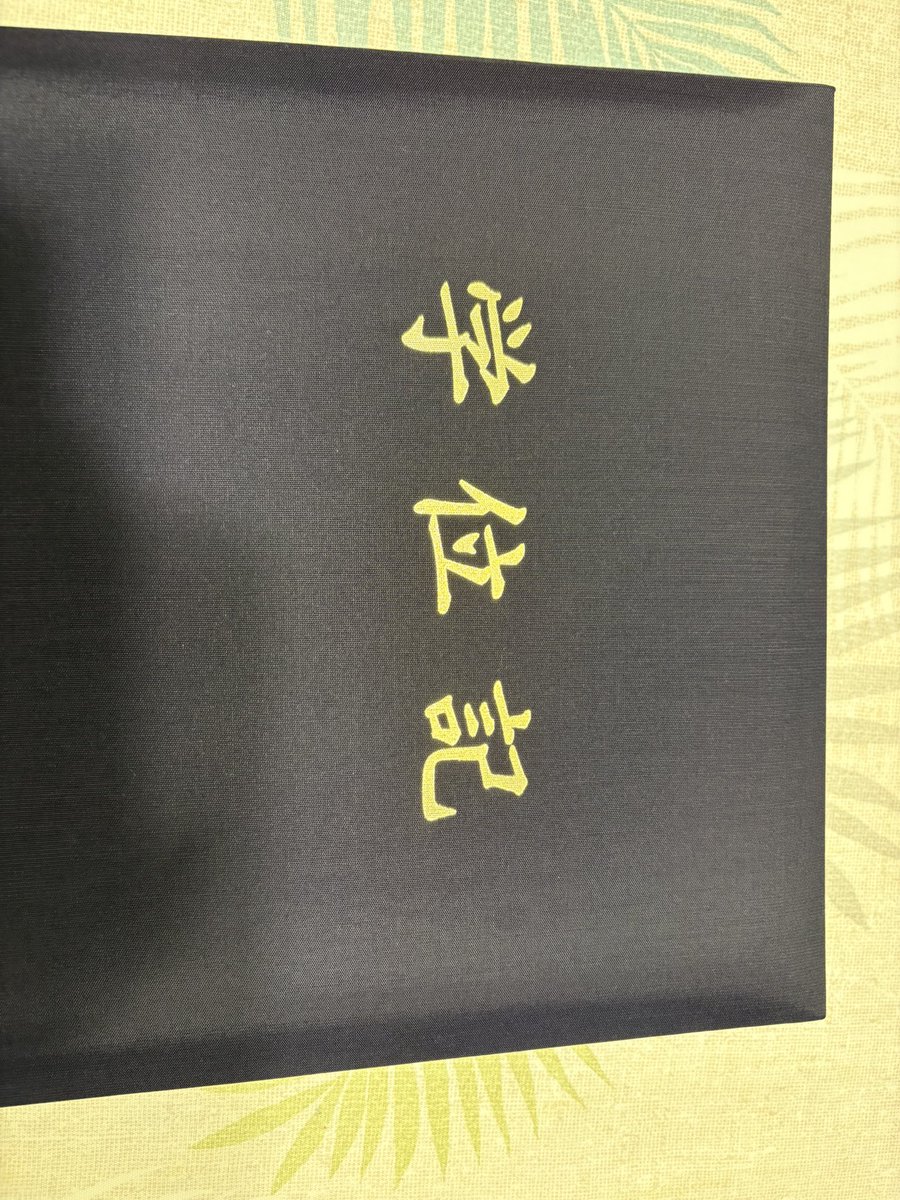 学位記